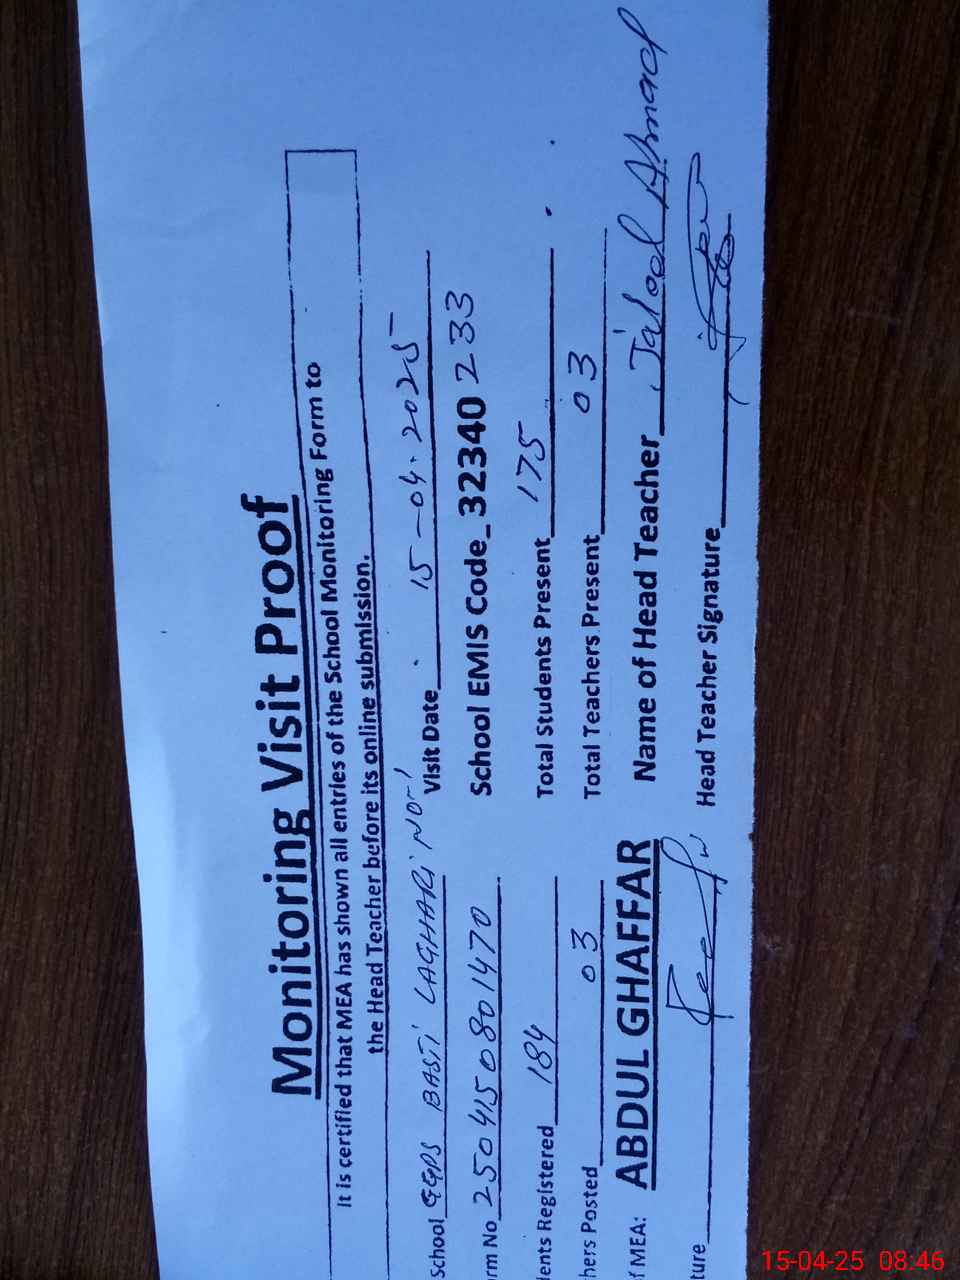 Monitoring Visit Proof
It is certified that MEA has shown all entries of the School Monitoring Form to
the Head Teacher before its online submission.
School GGPS BASTI LAGHARI NO-1 Visit Date 15-04-2025
rm No 2504150801470 School EMIS Code_32340 233
ents Registered 184 Total Students Present 175
hers Posted 03 Total Teachers Present 03
f MEA: ABDUL GHAFFAR Name of Head Teacher Jaleel Ahmad
ture Head Teacher Signature
15-04-25 08:46